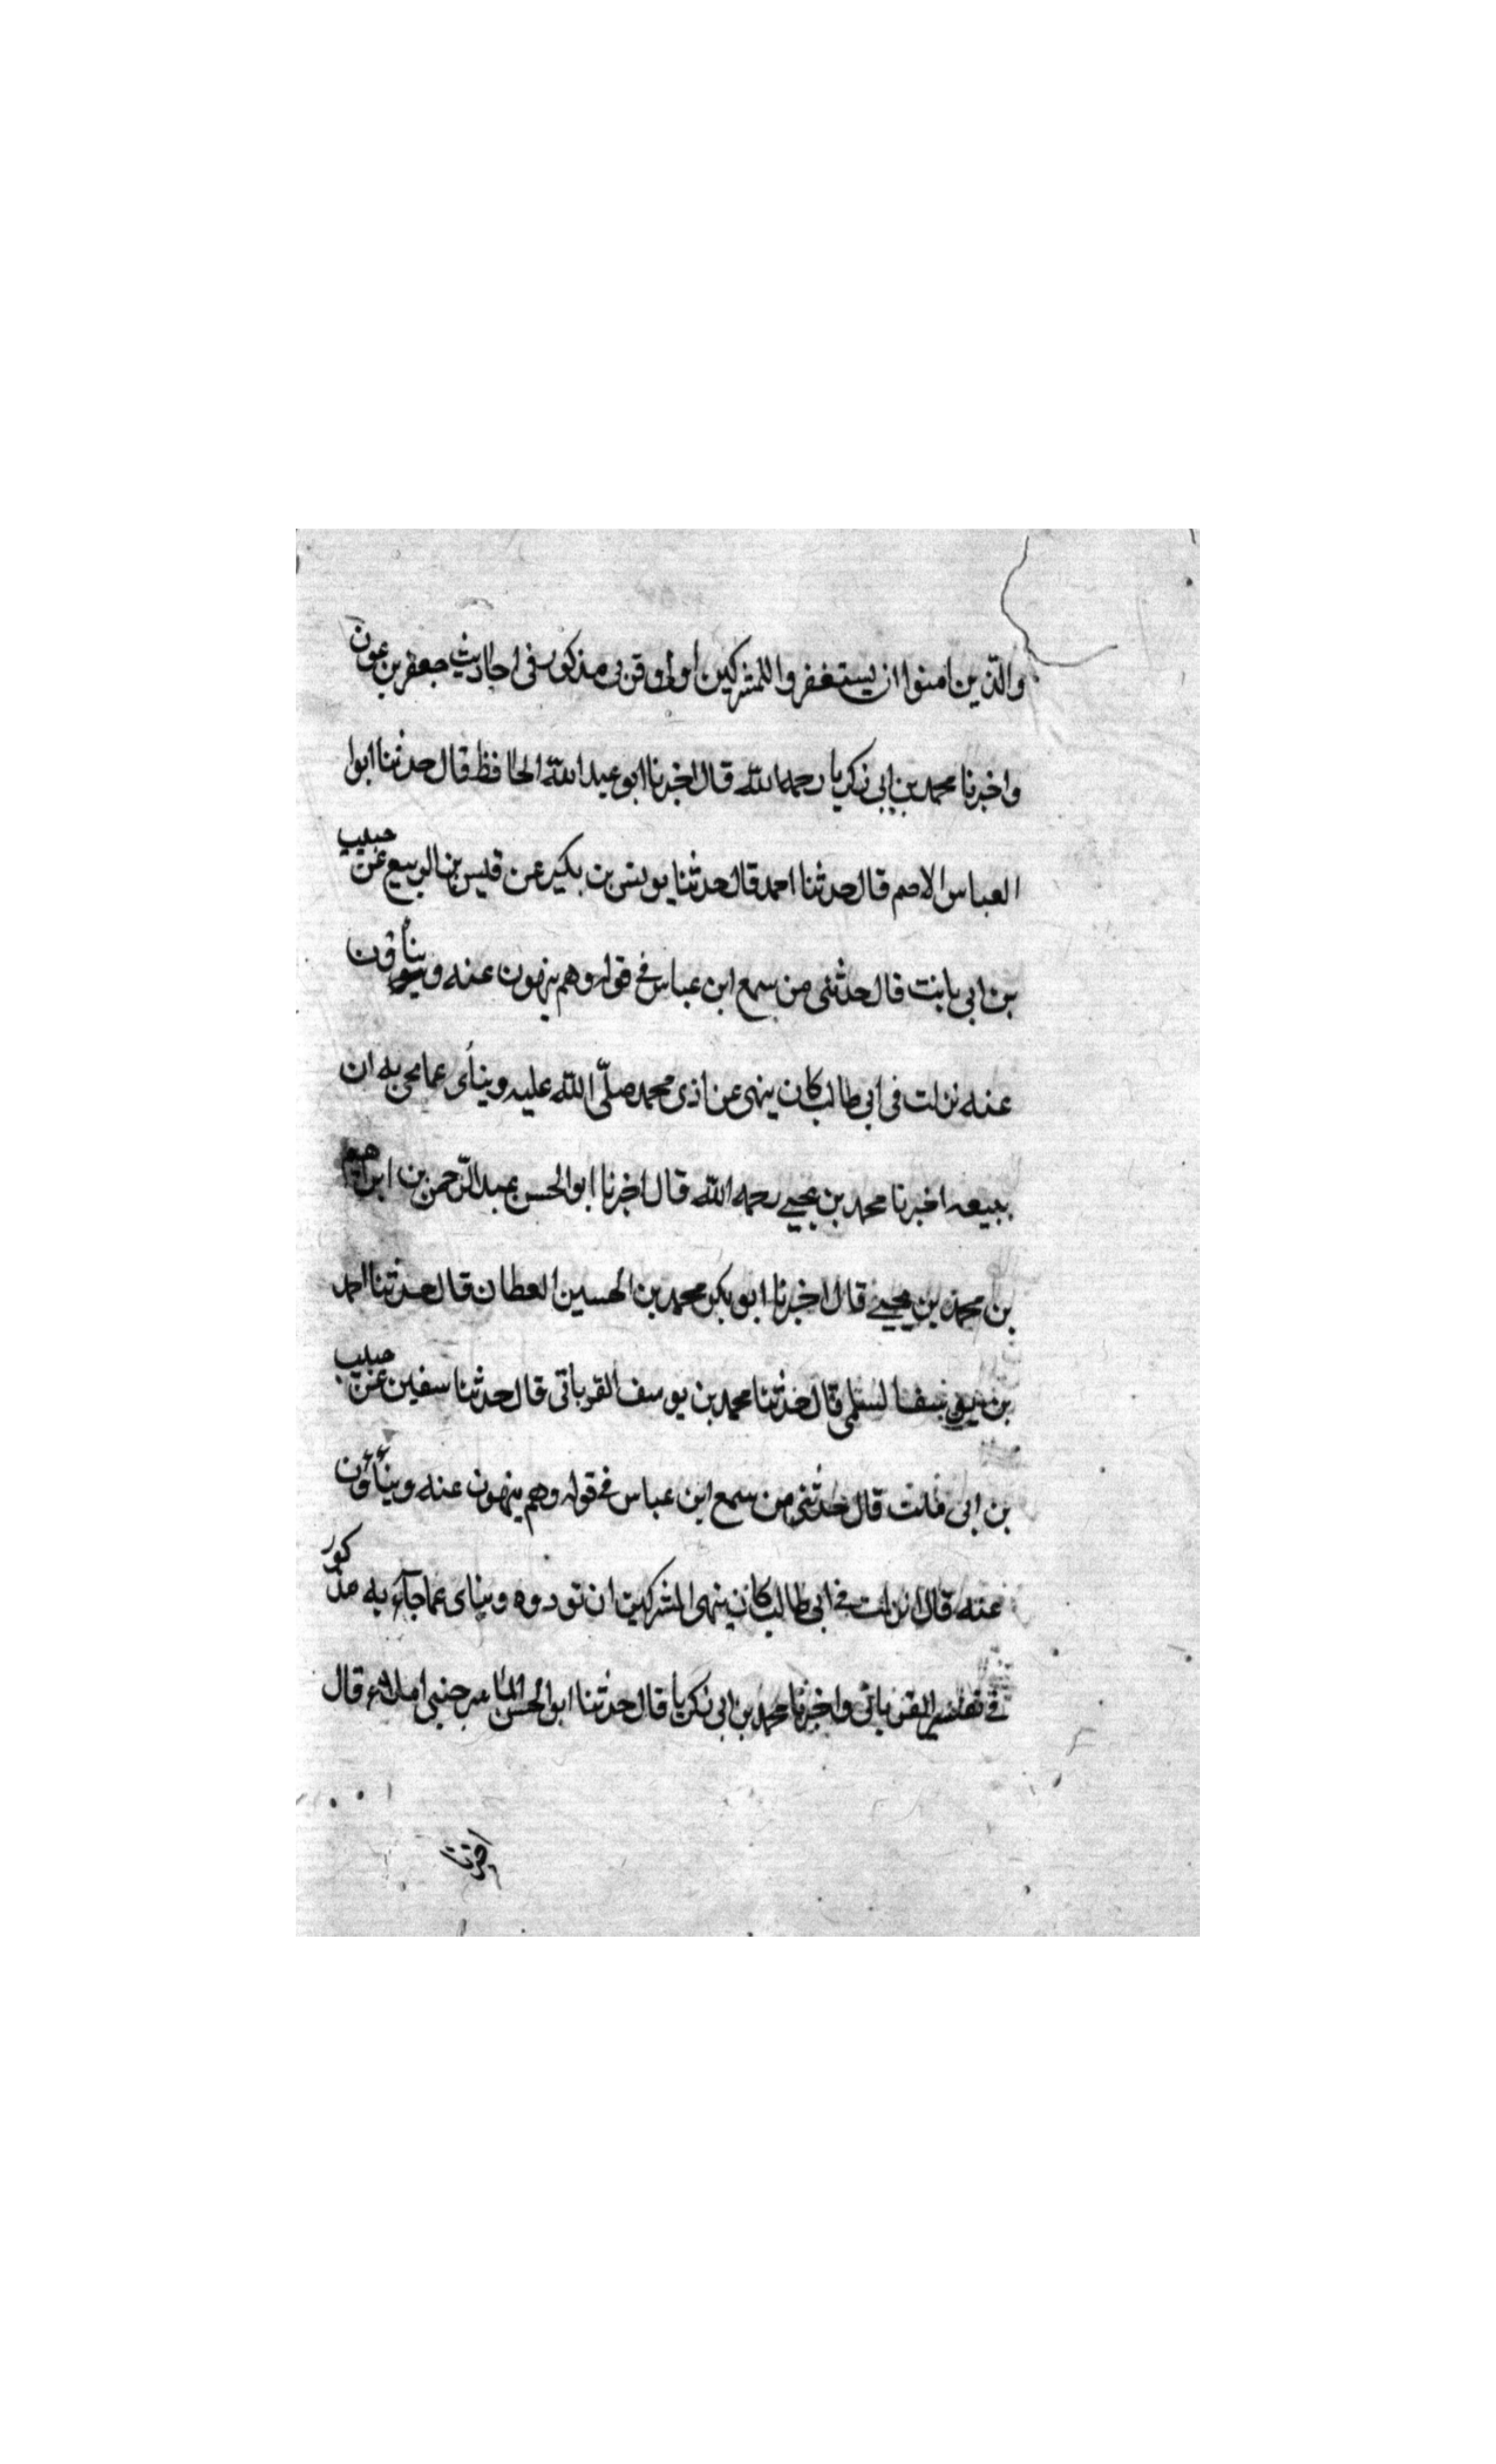 والذين امنوا ان يستغفروا للمشركين اولى وقربى مذكور فى احاديث جعفر بن عون
واخبرنا محمد بن ابى زكريا رحمه الله قال اخبرنا ابو عبد الله الحافظ قال حدثنا ابوا
العباس الاصم قال حدثنا احمد قال حدثنا يونس بن بكير عن قيس بن الربيع عن حبيب
بن ابى ثابت قال حدثنى من سمع ابن عباس فى قوله وهم ينهون عنه وينأون
عنه نزلت فى ابى طالب كان ينهى عن اذى محمد صلى الله عليه وينأى عما يجى به ان
اخبرنا محمد بن يحيى رحمه الله قال اخبرنا ابو الحسن عبد الرحمن بن ابراهيم
بن محمد بن يحيى قال اخبرنا ابو بكر محمد بن الحسين العطان قال حدثنا احمد
بن يوسف السلمى قال حدثنا محمد بن يوسف القرباتى قال حدثنا سفين عن حبيب
بن ابى قال حدثنى من سمع ابن عباس فى قوله وهم ينهون عنه وينأون
عنه قال نزلت فى ابى طالب كان ينهى المشركين ان تودوه وينأى عما جاء به مذكور
فى واخبرنا محمد بن ابى زكريا قال حدثنا ابو الحسن املاء قال